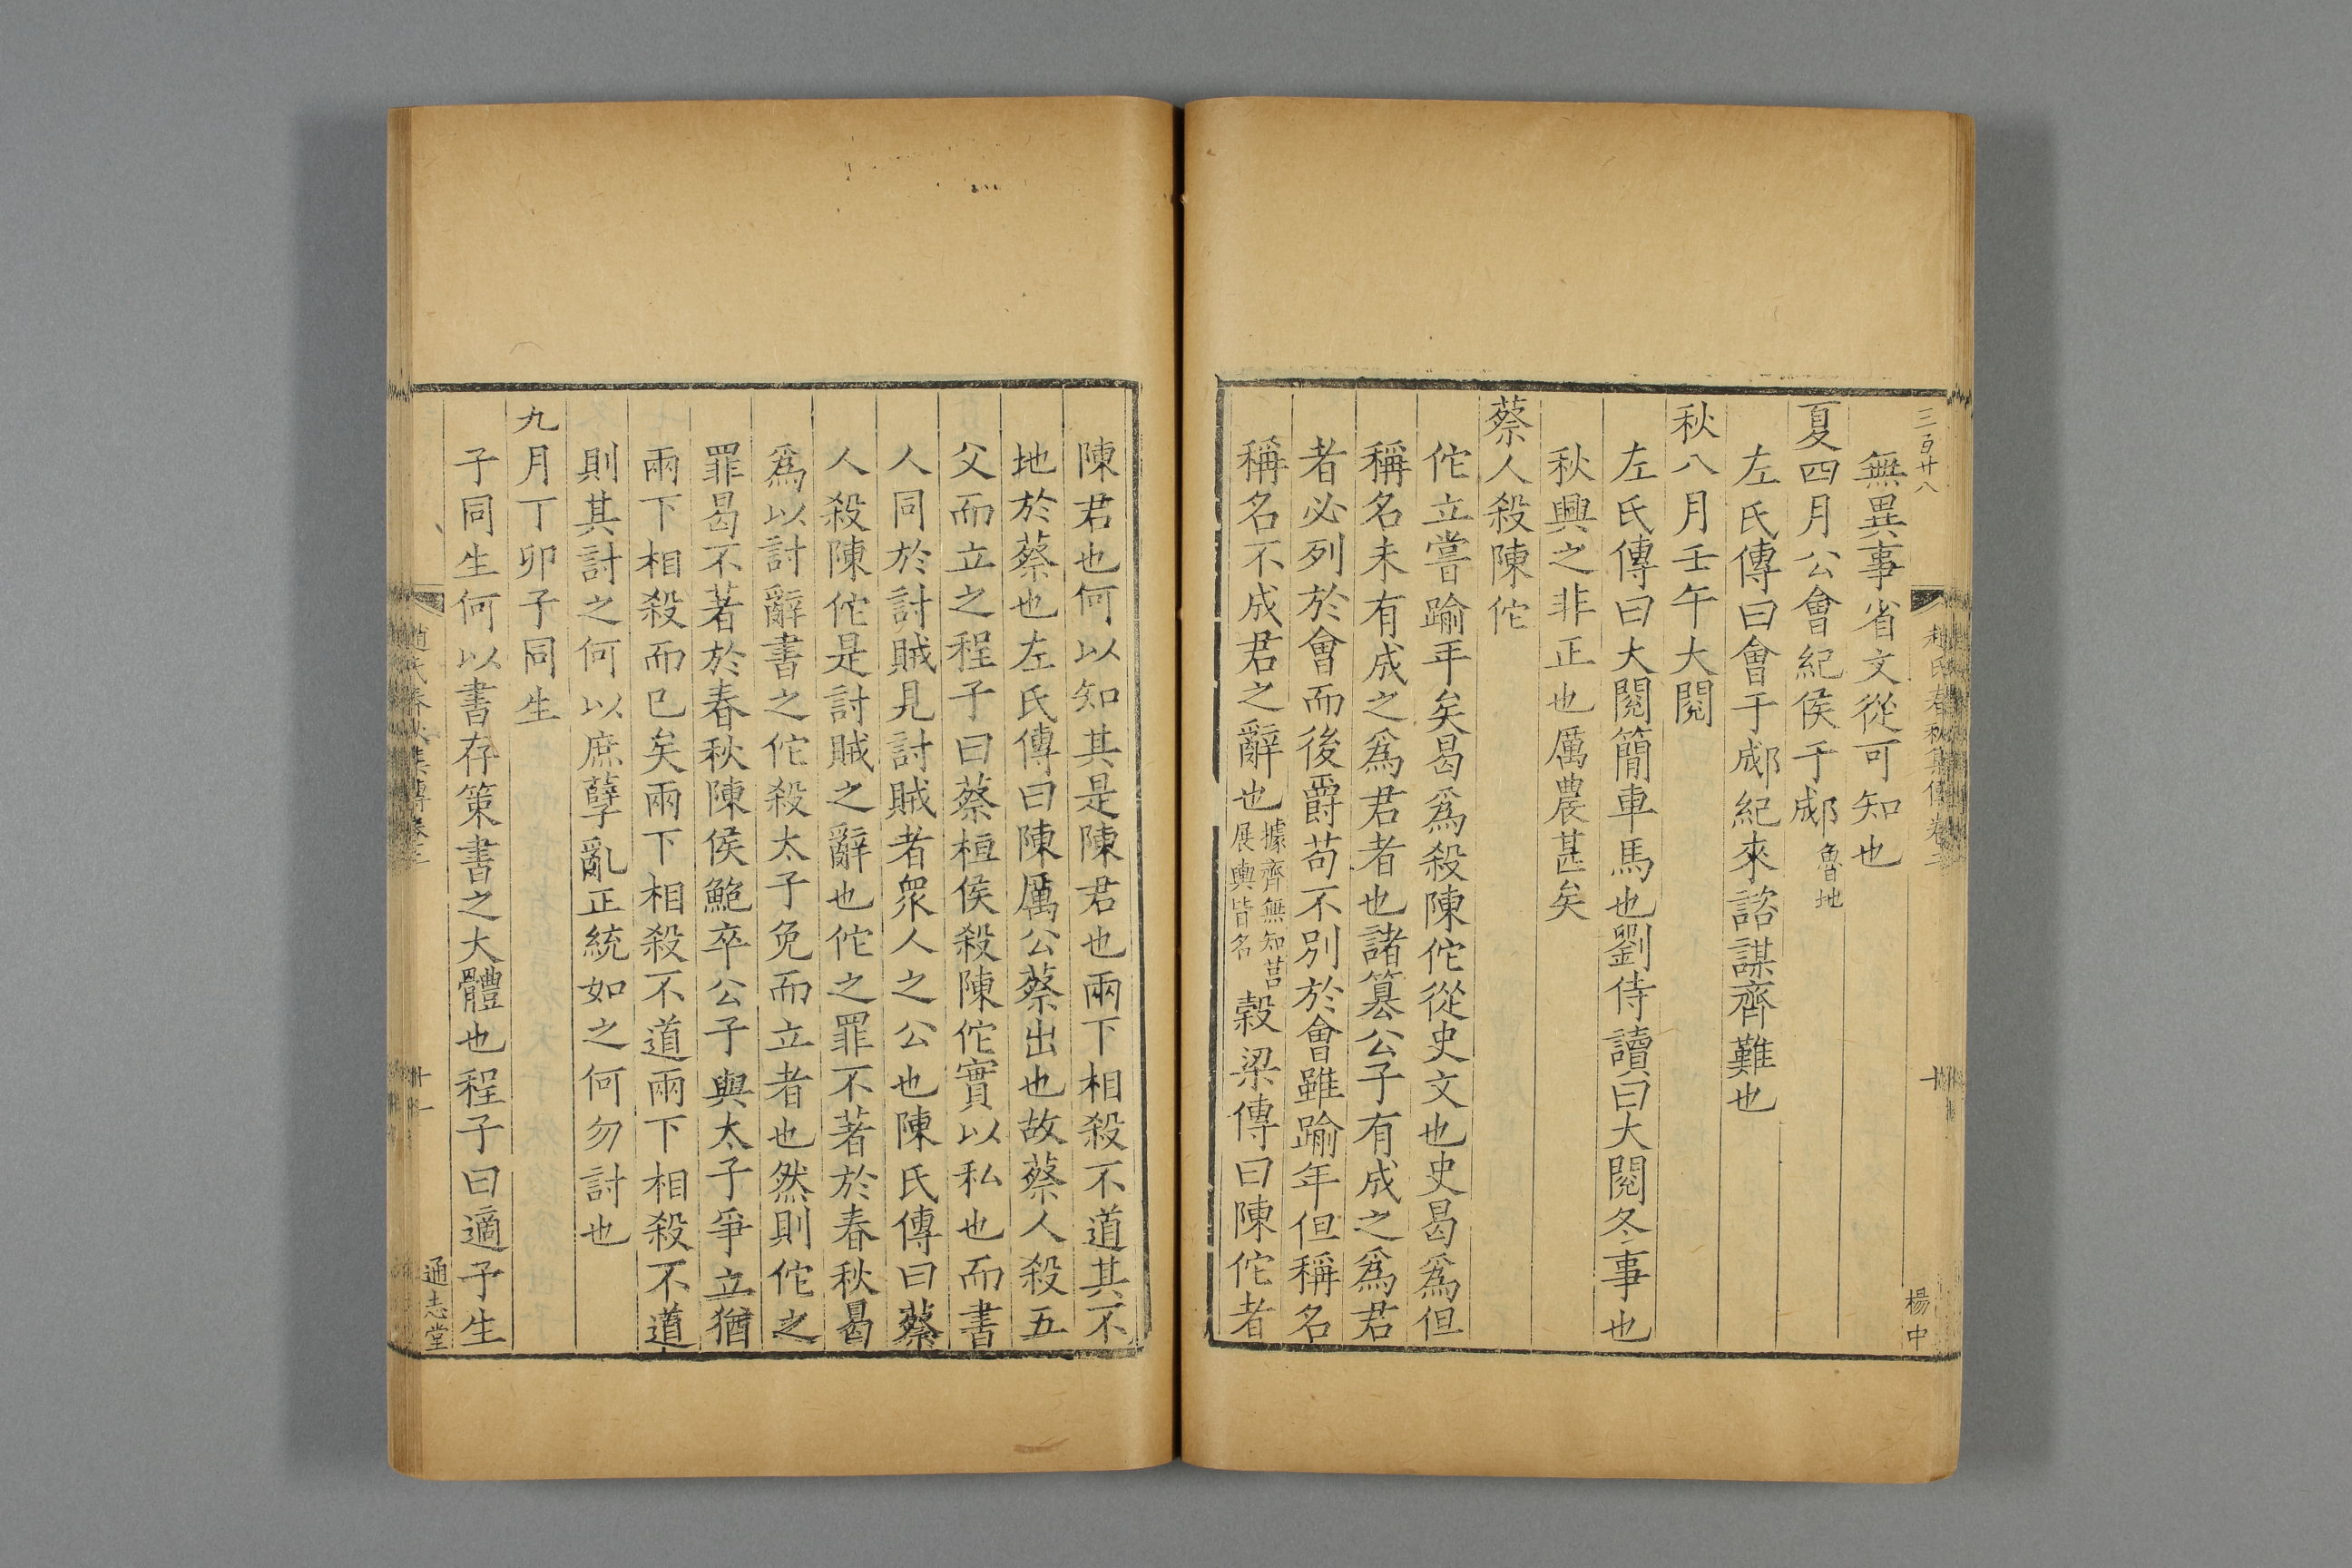 三百廿八
無異事省文從可知也
夏四月公會紀侯于郕魯地
左氏傳曰會于郕紀來諮謀齊難也
秋八月壬午大閱
左氏傳曰大閱簡車馬也劉侍讀曰大閱冬事也
秋興之非正也厲農甚矣
蔡人殺陳佗
佗立嘗踰年矣曷為殺陳佗從史文也史曷為但
稱名未有成之為君者也諸簒公子有成之為君
者必列於會而後爵苟不別於會雖踰年但稱名
稱名不成君之辭也據齊無知莒展輿皆名穀梁傳曰陳佗者
趙氏春秋集傳卷二
十
楊中
陳君也何以知其是陳君也兩下相殺不道其不
地於蔡也左氏傳曰陳厲公蔡出也故蔡人殺五
父而立之程子曰蔡桓侯殺陳佗實以私也而書
人同於討賊見討賊者衆人之公也陳氏傳曰蔡
人殺陳佗是討賊之辭也佗之罪不著於春秋曷
為以討辭書之佗殺太子免而立者也然則佗之
罪曷不著於春秋陳侯鮑卒公子與太子爭立猶
兩下相殺而已矣兩下相殺不道兩下相殺不道
則其討之何以庶孽亂正統如之何勿討也
九月丁卯子同生
子同生何以書存策書之大體也程子曰適子生
趙氏春秋集傳卷二
十一
通志堂